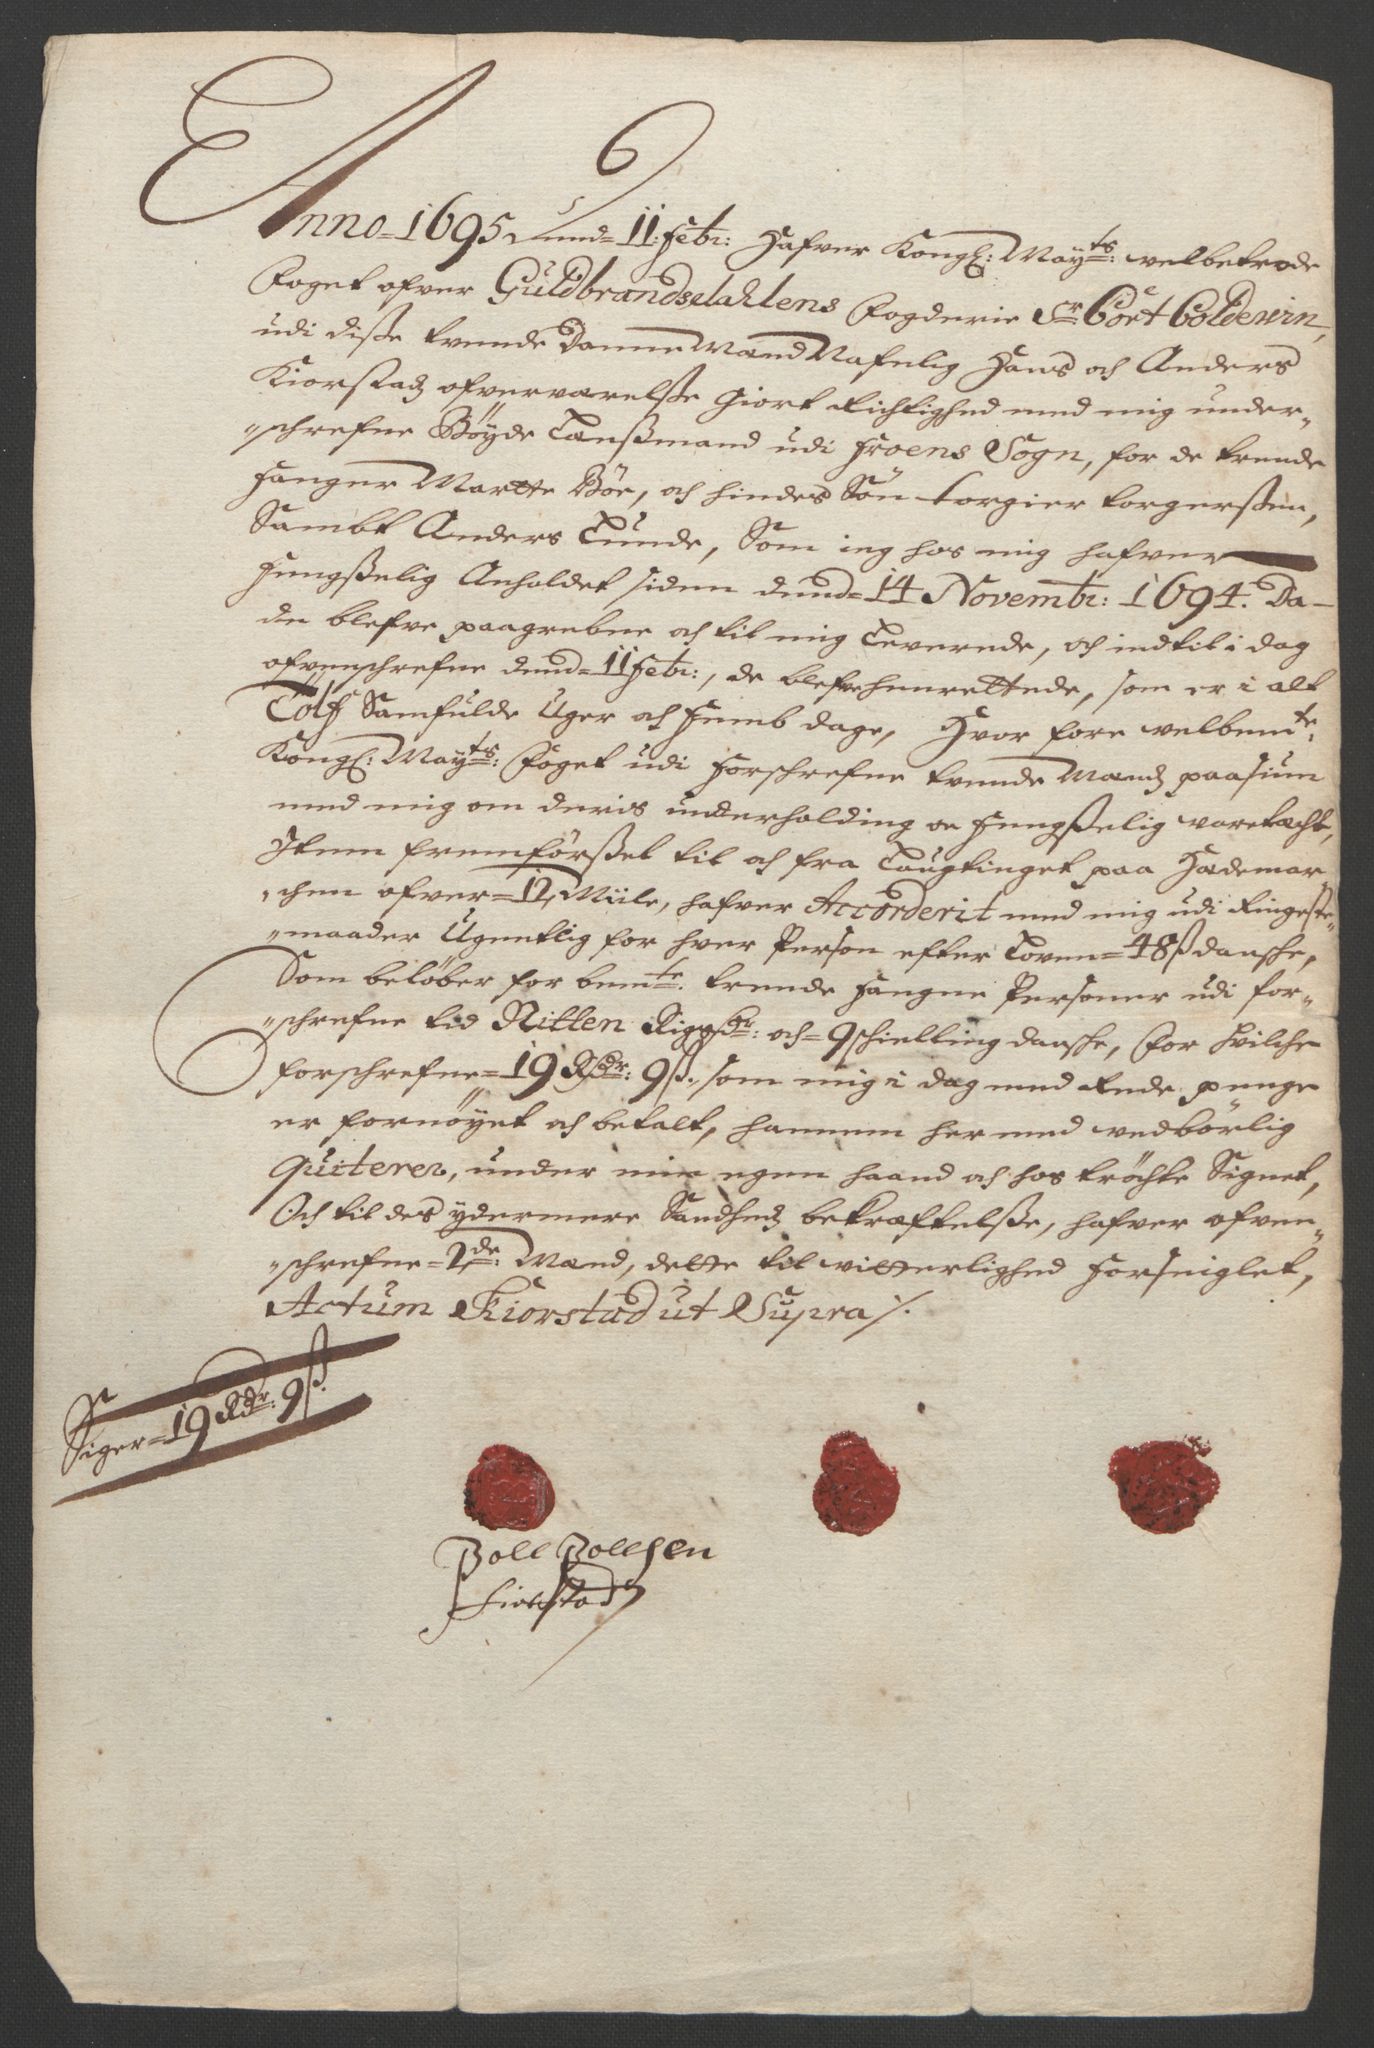 Anno = 1695 dend = 11: Febr: Hafver Kongl: Mayts: velbetrode
Foget ofver Guldbrandsdahlens Fogderie Sr Cort Coldewin,
udi disse tvende Danne Mænd Nafnlig Hans och Anders
Kiorstad ofverværelse Giort Richtighed med mig under-
"schrefne Böyde Lensmand udi Froens Sogn, for de trende
Fanger Martte Böe, och hindes Sön torgier torgerssen,
Sambt Anders Lunde, Som ieg hos mig hafver
Fengsselig Anholdet siden dend = 14 Novembr: 1694. Da
de blefve paagrebne och til mig Leverede, och indtil i dag
ofvenschrefne dend = 11 Febr:, de blefve henrettede, som er i alt
Tolf Samfulde Uger och Femb dage, Hvor fore velbemte:
Kongl: Mayts: Foget udi Forschrefne tvende Mænds paasiun
med mig om deris underholding oc Fengsselig varetecht,
Item fremförssel til och fra Laugtinget paa Hedemar
"chen ofver = 12 Miile, hafver Accorderit med mig udi Ringeste
"maader Ugentlig for hver Person efter Loven = 48 ß dansche,
Som belöber for bemte: trende Fangne Personer udi for-
"schrefne tid Nitten Rigsdr: och = 9 schielling dansche, for hvilche
forschrefne = 19 Rdr: 9 ß. som mig i dag med Rede penge
er fornöyet och betalt, hannem her med vedbörlig
Quiterer, under min egen haand och hos tröchte Signet,
Och til des ydermere Sandheds bekræftelsse, hafver ofven-
"schrefne = 2de: Mænd, dette til vitterlighed Forseiglet,
Actum Kiorstad ut Supra /.
Siger = 19 Rdr: 9 ß.
Poll Pollsen
Kiorstad